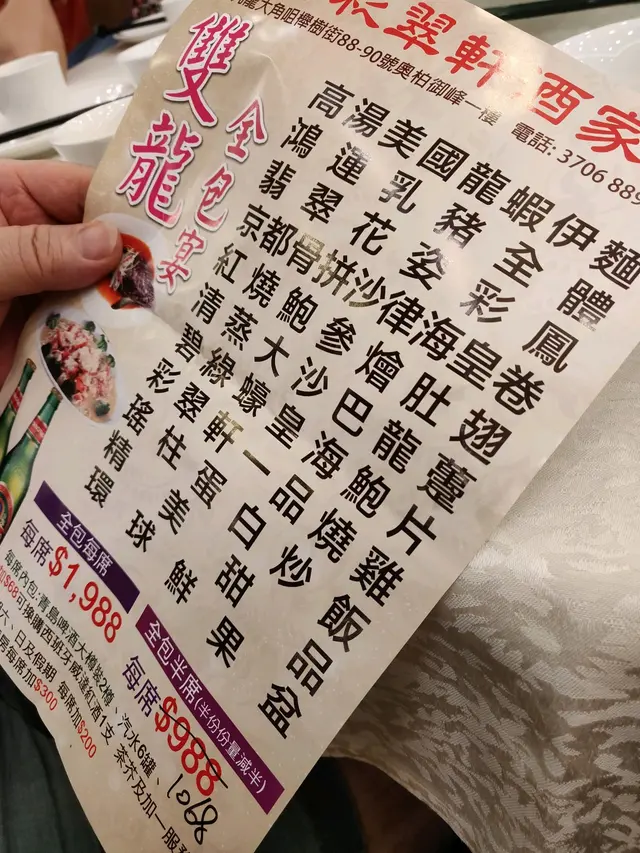 彩翠軒酒家
龍大角咀櫸樹街88-90號奧柏御峰一樓 電話: 3706 889
雙龍
全包宴
高湯美國龍蝦伊麵
鴻運乳豬全體
翡翠花姿彩鳳
京都骨拼沙律海皇卷
紅燒鮑參燴肚翅
清蒸大沙巴龍躉
碧綠蠔皇海鮑片
彩翠軒一品燒雞
瑤柱蛋白炒飯
精美甜品
環球鮮果盆
全包每席
每席$1,988
全包半席(半份份量減半)
每席$988 1068
每席內包:青島啤酒大樽裝2樽、汽水6罐、
加$68可換購西班牙威達紅酒1支 茶芥及加一服
六、日及假期 每席加$200
房每席加$300